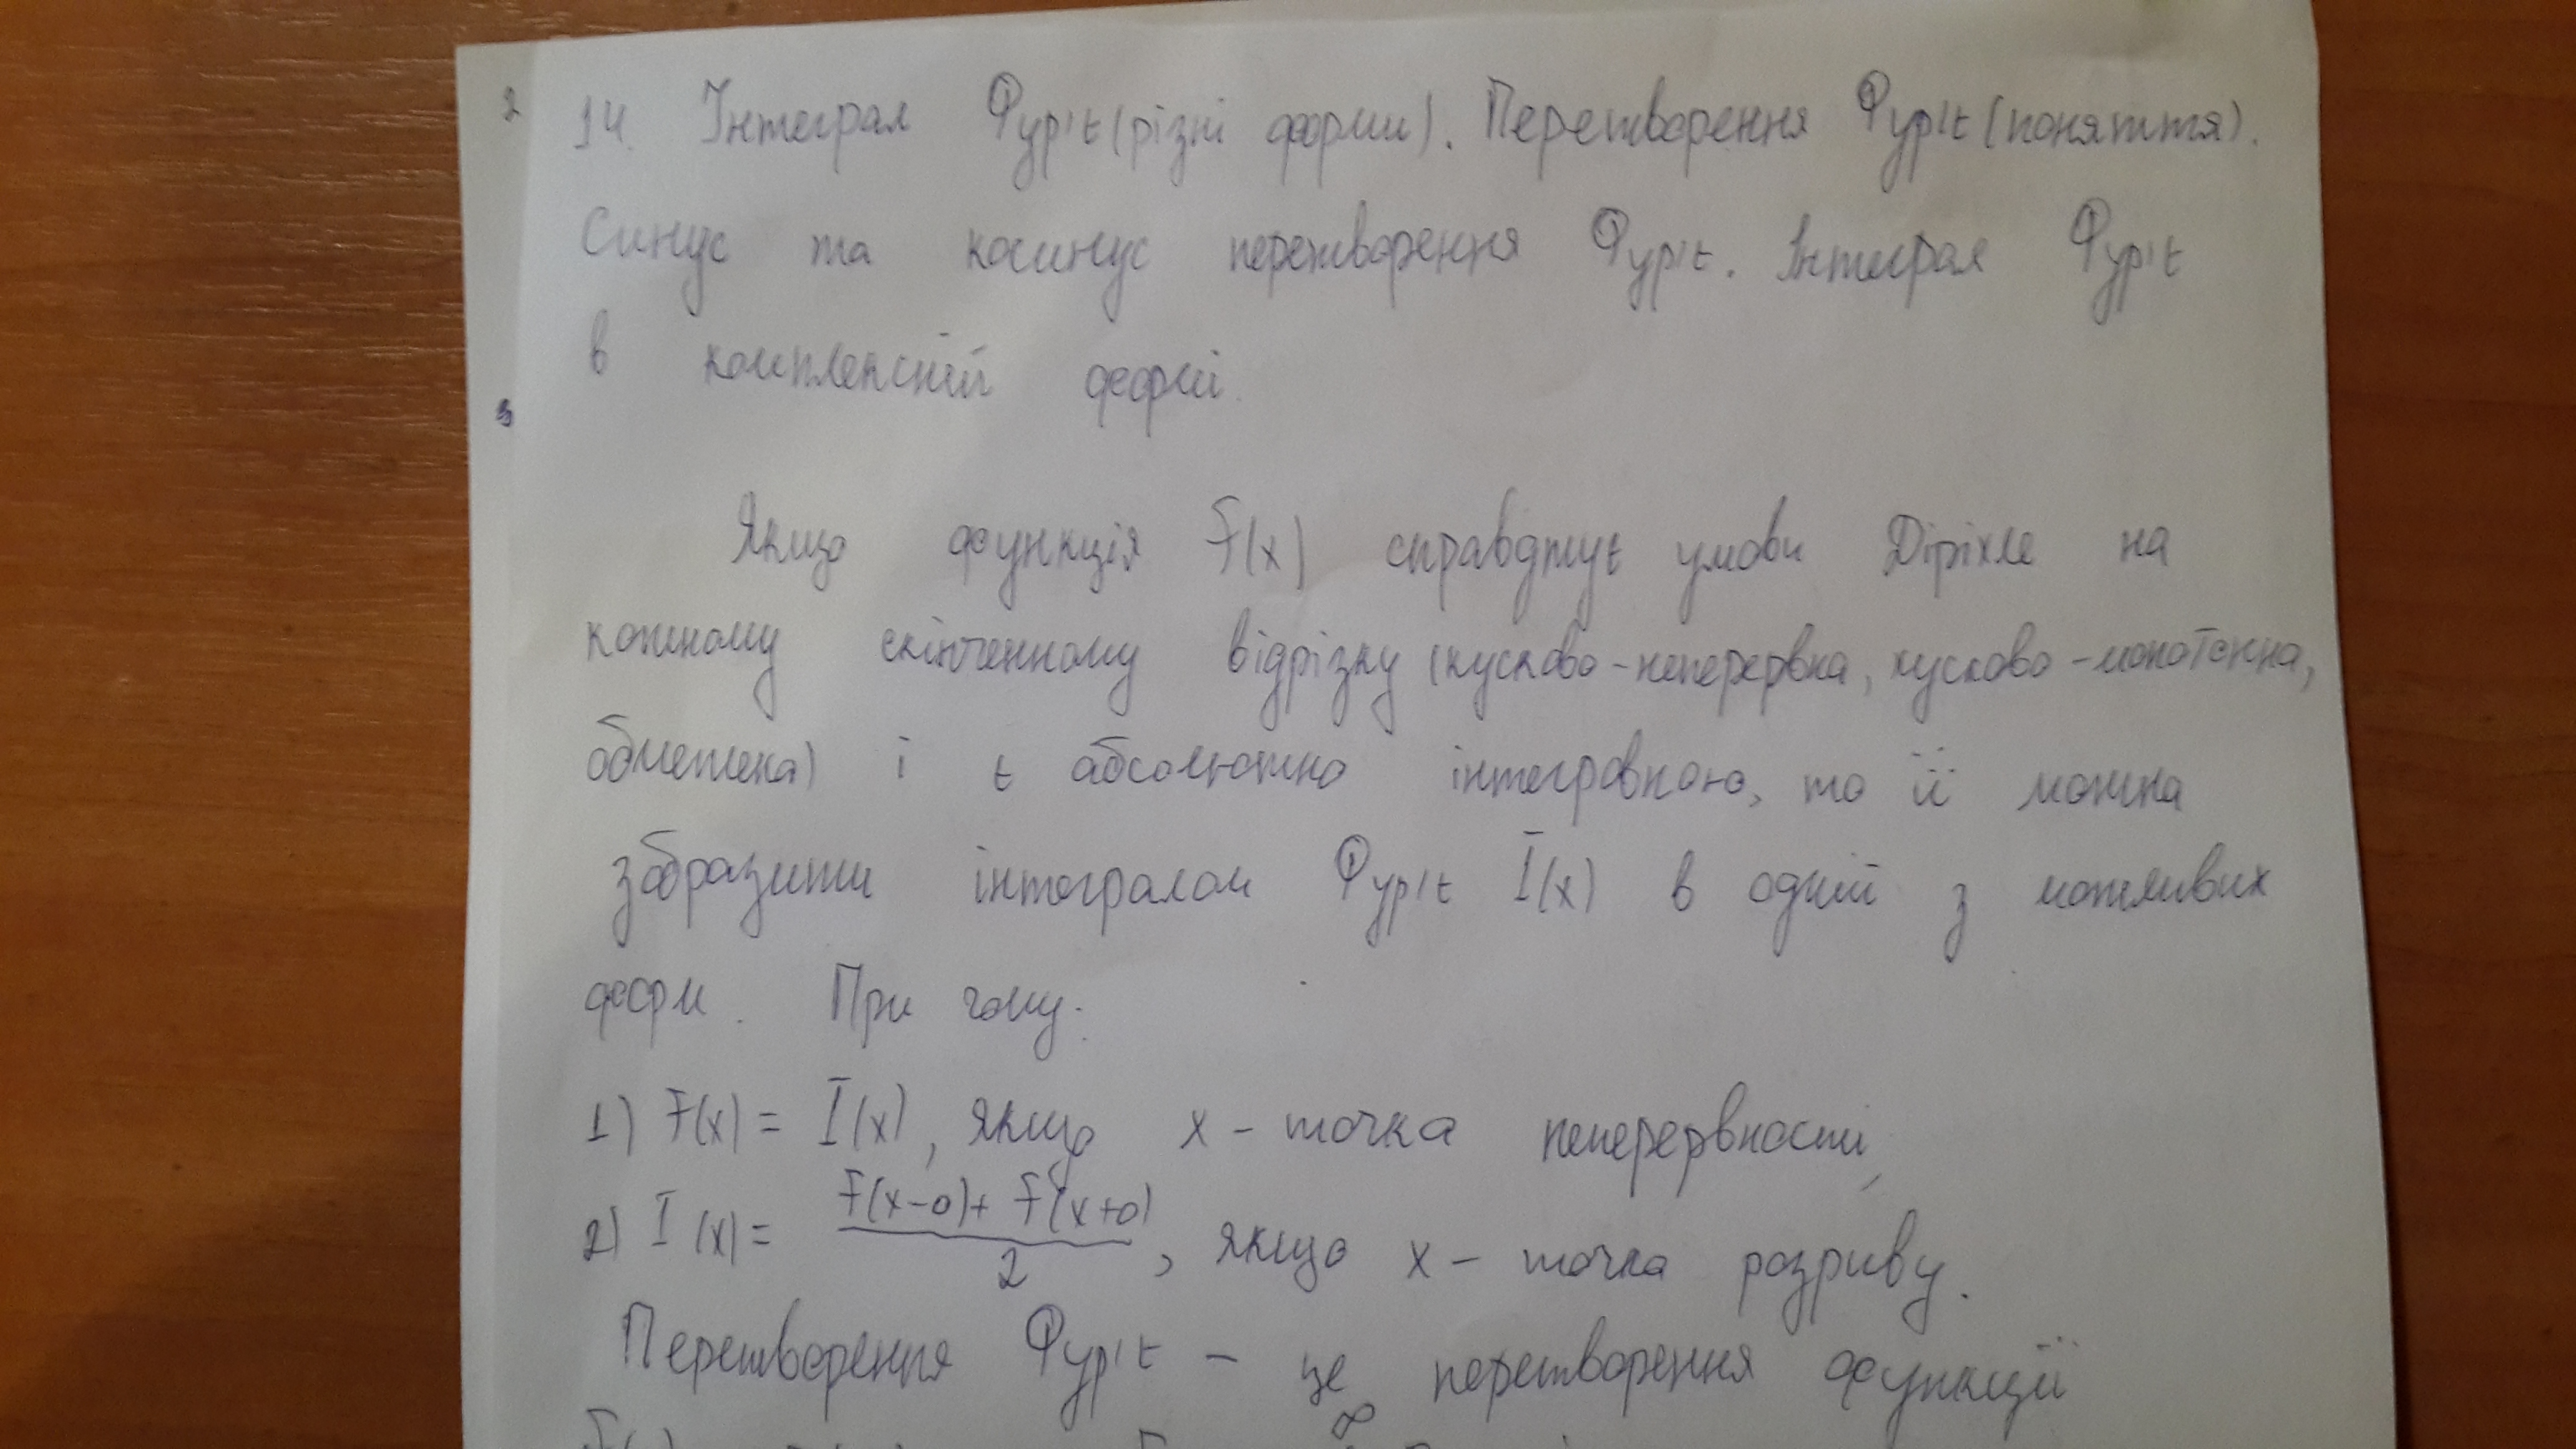 14. Інтеграл Фур'є (різні форми). Перетворення Фур'є (поняття).
Синус та косинус перетворення Фур'є. Інтеграл Фур'є
в комплексній формі.
Якщо функція f(x) справджує умови Діріхле на
кожному скінченному відрізку (кусково-неперервна, кусково-монотонна,
обмежена) і є абсолютно інтегровною, то її можна
зобразити інтегралом Фур'є I(x) в одній з можливих
форм. При чому:
1) f(x) = I(x), якщо x - точка неперервності;
2) I(x) = \frac{f(x-0)+f(x+0)}{2}, якщо x - точка розриву.
Перетворення Фур'є - це перетворення функції